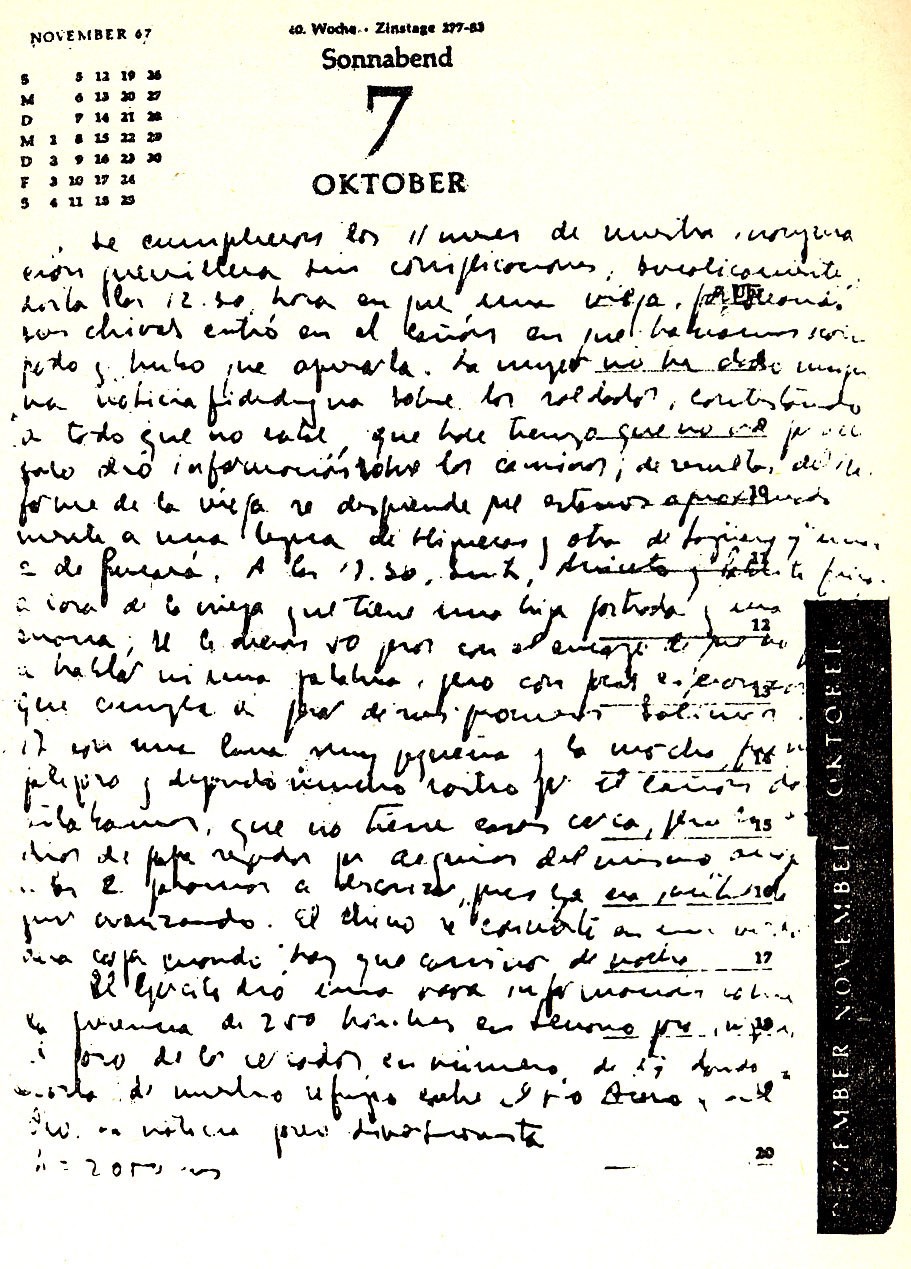 NOVEMBER 67
40. Woche · Zinstage 277-83
Sonnabend
7
OKTOBER
S 5 12 19 26
M 6 13 20 27
D 7 14 21 28
M 1 8 15 22 29
D 2 9 16 23 30
F 3 10 17 24
S 4 11 18 25
Se cumplieron los 11 meses de nuestra inaugura
ción guerrillera sin complicaciones, bucolicamente
hasta las 12.30, hora en que una vieja,
sus chivas entró en el cañón en que habíamos acam
pado y hubo que apresarla. La mujer no ha dado ningu
na noticia fidedigna sobre los soldados, contestando
a todo que no sabe, que hace tiempo que no va por allí
solo dió información sobre los caminos; de resultas del in
forme de la vieja se desprende que estamos aproximada
mente a una legua de Higueras y otra de Jagüey y unas
2 de Pucará. A las 17.30, Inti, Aniceto y Pablito fueron
a casa de la vieja que tiene una hija postrada y una
enana; se le dieron 50 pesos con el encargo de que no
a hablar ni una palabra, pero con pocas esperanzas
que cumpla a pesar de sus promesas. Salimos
17 con una luna muy pequeña y la marcha fue
peligro y dejando mucho rastro por el cañón do
estabamos, que no tiene casas cerca, pero
dios de papa regados por acequias del mismo arroyo
A las 2 paramos a descansar, pues ya era inútil
guir avanzando. El Chino se convierte en una
dera carga cuando hay que caminar de noche
El Ejército dió una rara información sobre
la presencia de 250 hombres en Serrano para impedir
el paso de los cercados en número de 37 dando
zona de nuestro refugio entre el río Acero y el
Oro. La noticia parece diversionista
h = 2000 ms
10
11
12
13
14
15
16
17
18
19
20
DEZEMBER NOVEMBER OKTOBER